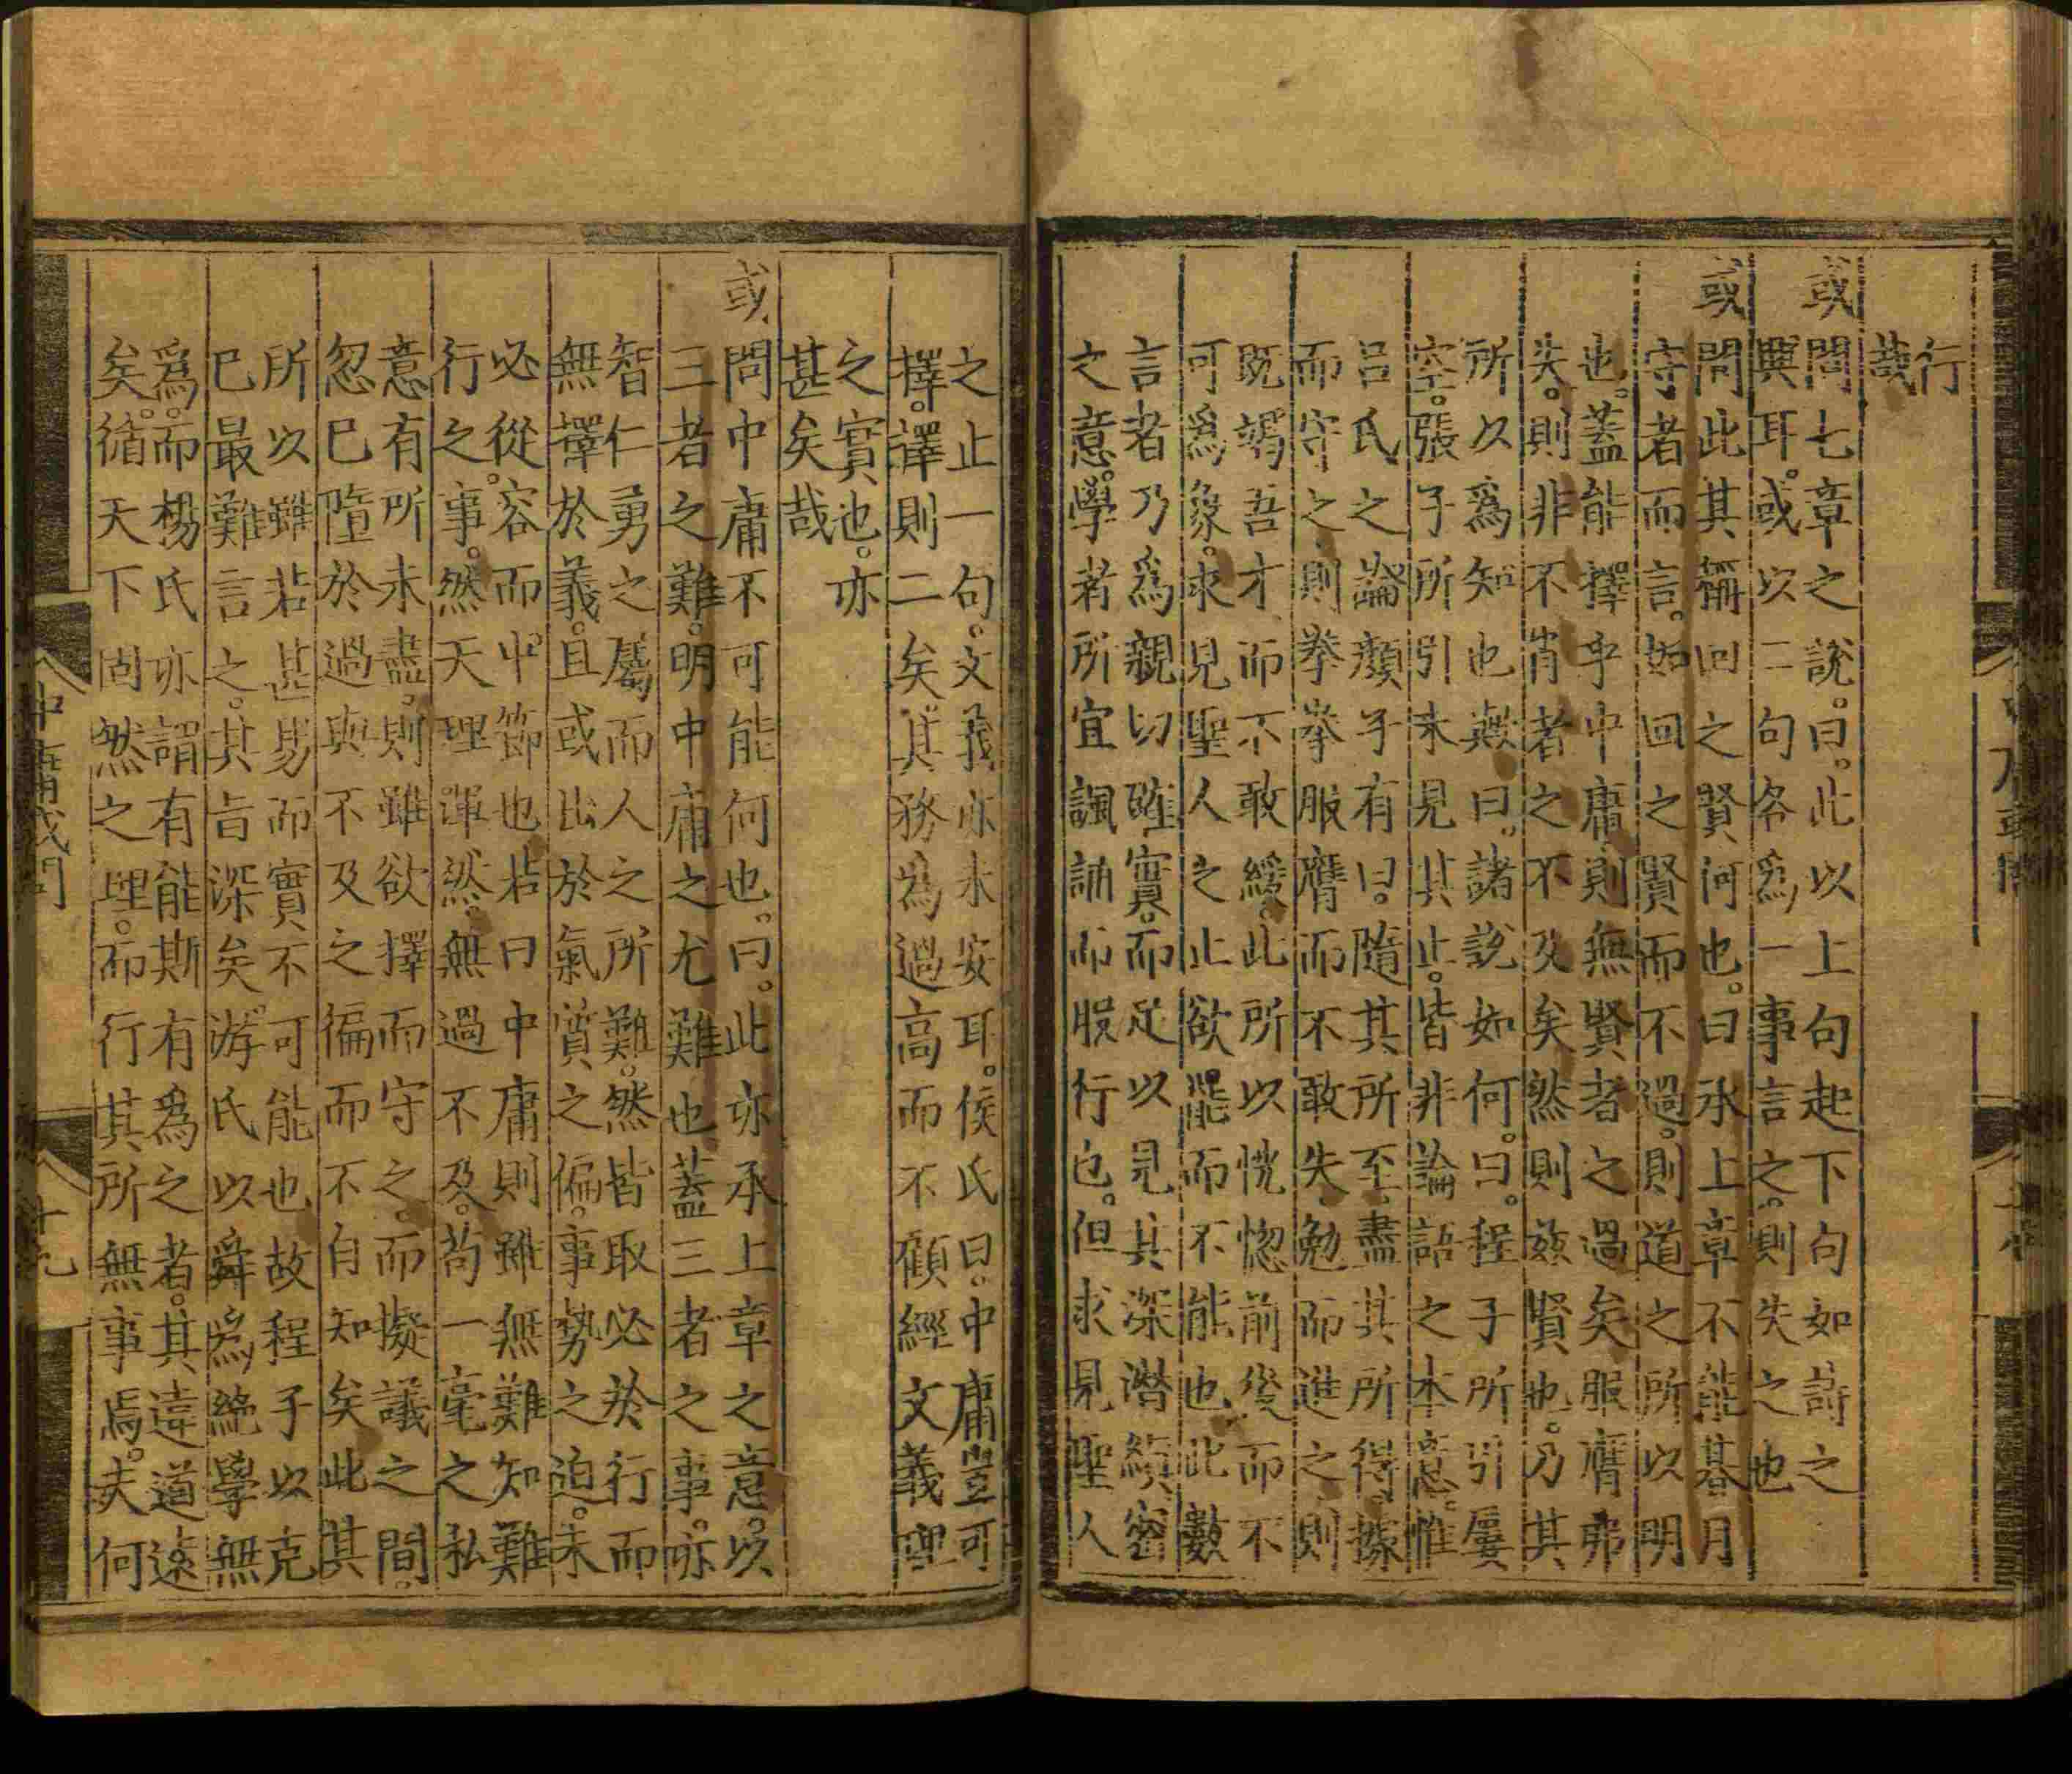 行
哉
或問七章之說。曰。此以上句起下句如詩之
興耳。或以二句各爲一事言之。則失之也
或問此其稱回之賢何也。曰承上章不能朞月
守者而言。如回之賢而不過。則道之所以明
也。蓋能擇乎中庸則無賢者之過矣服膺弗
失。則非不肖者之不及矣然則玆賢也。乃其
所以爲知也歟曰。諸說如何。曰。程子所引屢
空。張子所引未見其止。皆非論語之本意。惟
呂氏之論顏子有曰。隨其所至。盡其所得。據
而守之則拳拳服膺而不敢失。勉而進之則
既竭吾才而不敢緩。此所以恍惚前後而不
可爲象。求見聖人之止欲罷而不能也此數
言者乃爲親切確實。而足以見其深潛縝密
之意。學者所宜諷誦而服行也。但求見聖人
之止一句。文義亦未安耳。侯氏曰。中庸豈可
擇。擇則二矣。其務爲過高而不顧經文義理
之實也。亦
甚矣哉
或問中庸不可能何也。曰。此亦承上章之意。以
三者之難。明中庸之尤難也蓋三者之事。亦
智仁勇之屬而人之所難。然皆取必於行而
無擇於義。且或出於氣質之偏。事勢之迫。未
必從。容而中。節也若曰中庸則雖無難知難
行之事。然天理渾然。無過不及。苟一毫之私
意有所未盡。則雖欲擇而守之。而擬議之間。
忽已墮於過與不及之偏而不自知矣此其
所以雖若甚易而實不可能也故程子以克
己最難言之。其旨深矣。游氏以舜爲絶學無
爲。而楊氏亦謂有能斯有爲之者。其違道遠
矣。循天下固然之理。而行其所無事焉。夫何
中庸或問
十九